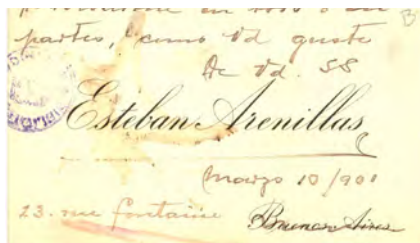 en todo o en
partes, como Vd guste
de Vd. SS
Esteban Arenillas
Marzo 10/901
23. rue fontaine
Buenos Aires